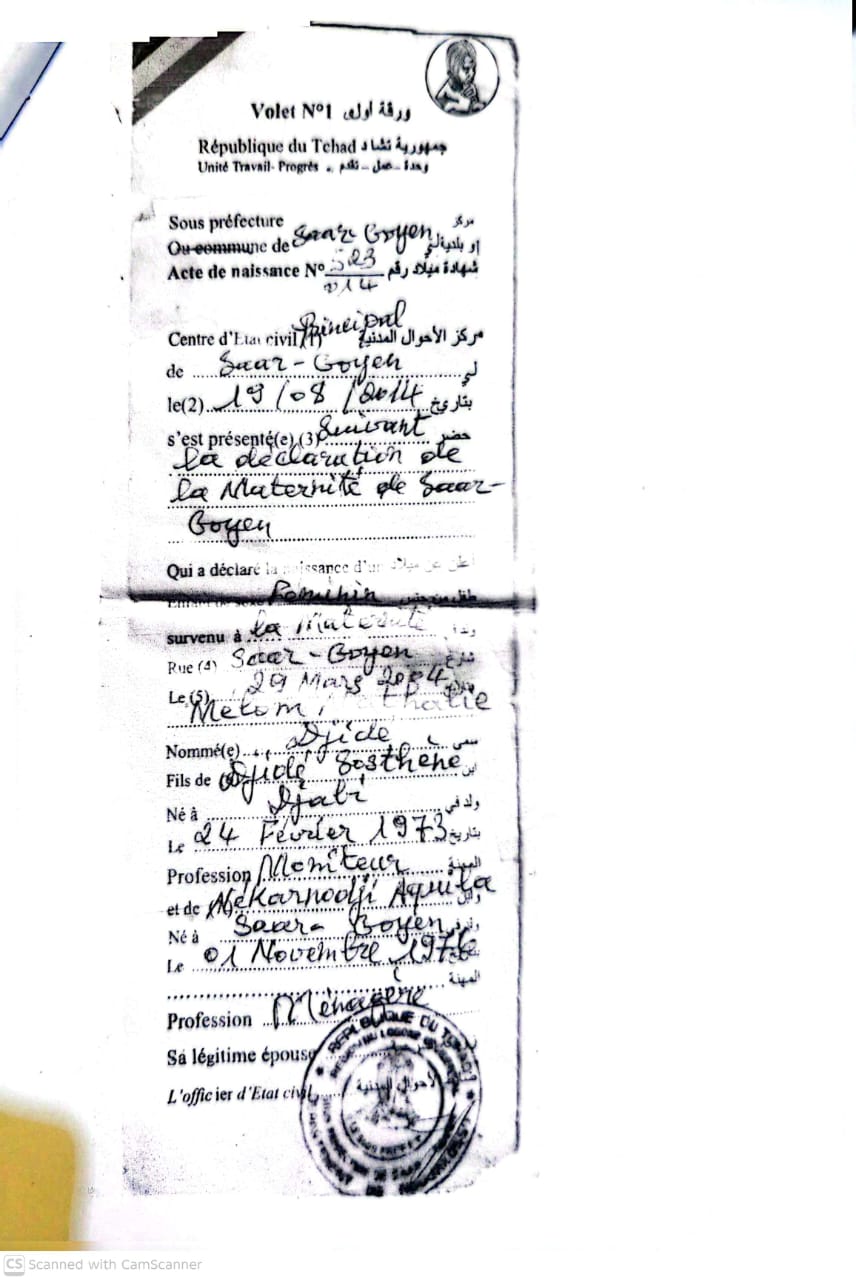 Volet N°1 ورقة أولى
République du Tchad جمهورية تشاد
Unité Travail- Progrès وحدة – عمل – تقدم
Sous préfecture مركز
Ou commune de Saar-Goyen أو بلدية
Acte de naissance N° 523/014 شهادة ميلاد رقم
Centre d'Etat civil (1) Principal مركز الأحوال المدنية
de Saar-Goyen
le(2) 19/08/2014 بتاريخ
s'est présenté(e) (3) Suivant حضر
la déclaration de
la Maternité de Saar-
Goyen
Qui a déclaré la naissance d'un
Feminin
survenu à la Maternité
Rue (4) Saar-Goyen شارع
Le (5) 29 Mars 2004
Melom Nathalie
Nommé(e) Djidé سمي
Fils de Djidé Sosthène ابن
Né à Djabi ولد في
Le 24 Février 1973 بتاريخ
Profession Moniteur المهنة
et de Nékarnodji Aquila
Né à Saar-Goyen
Le 01 Novembre
المهنة
Profession Ménagère
Sa légitime épouse
L'officier d'Etat civil
REPUBLIQUE DU TCHAD
الأحوال المدنية
CS Scanned with CamScanner